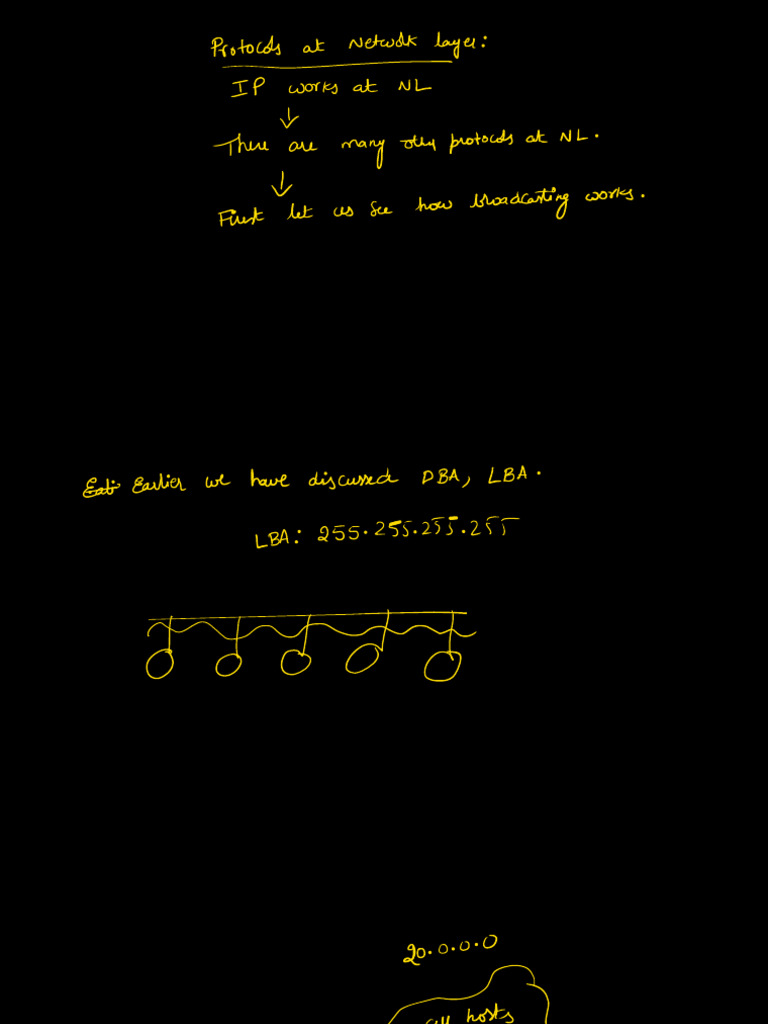 Protocols at Network layer:
IP works at NL
There are many other protocols at NL.
First let us see how broadcasting works.
Eat: Earlier we have discussed DBA, LBA.
LBA: 255.255.255.255
20.0.0.0
all hosts